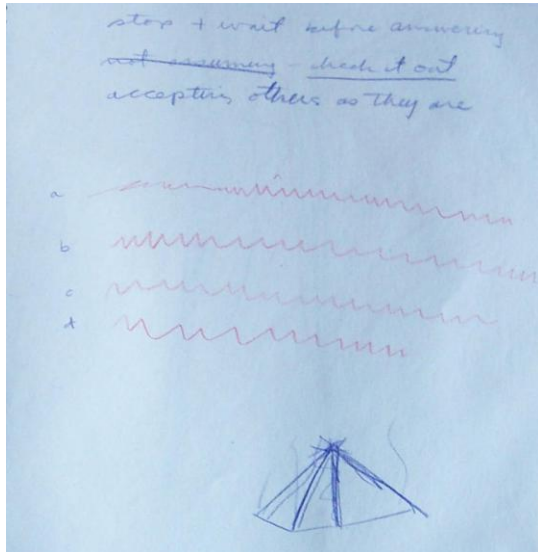 stop + wait before answering
not assuming - check it out
accepting others as they are
a
b
c
d